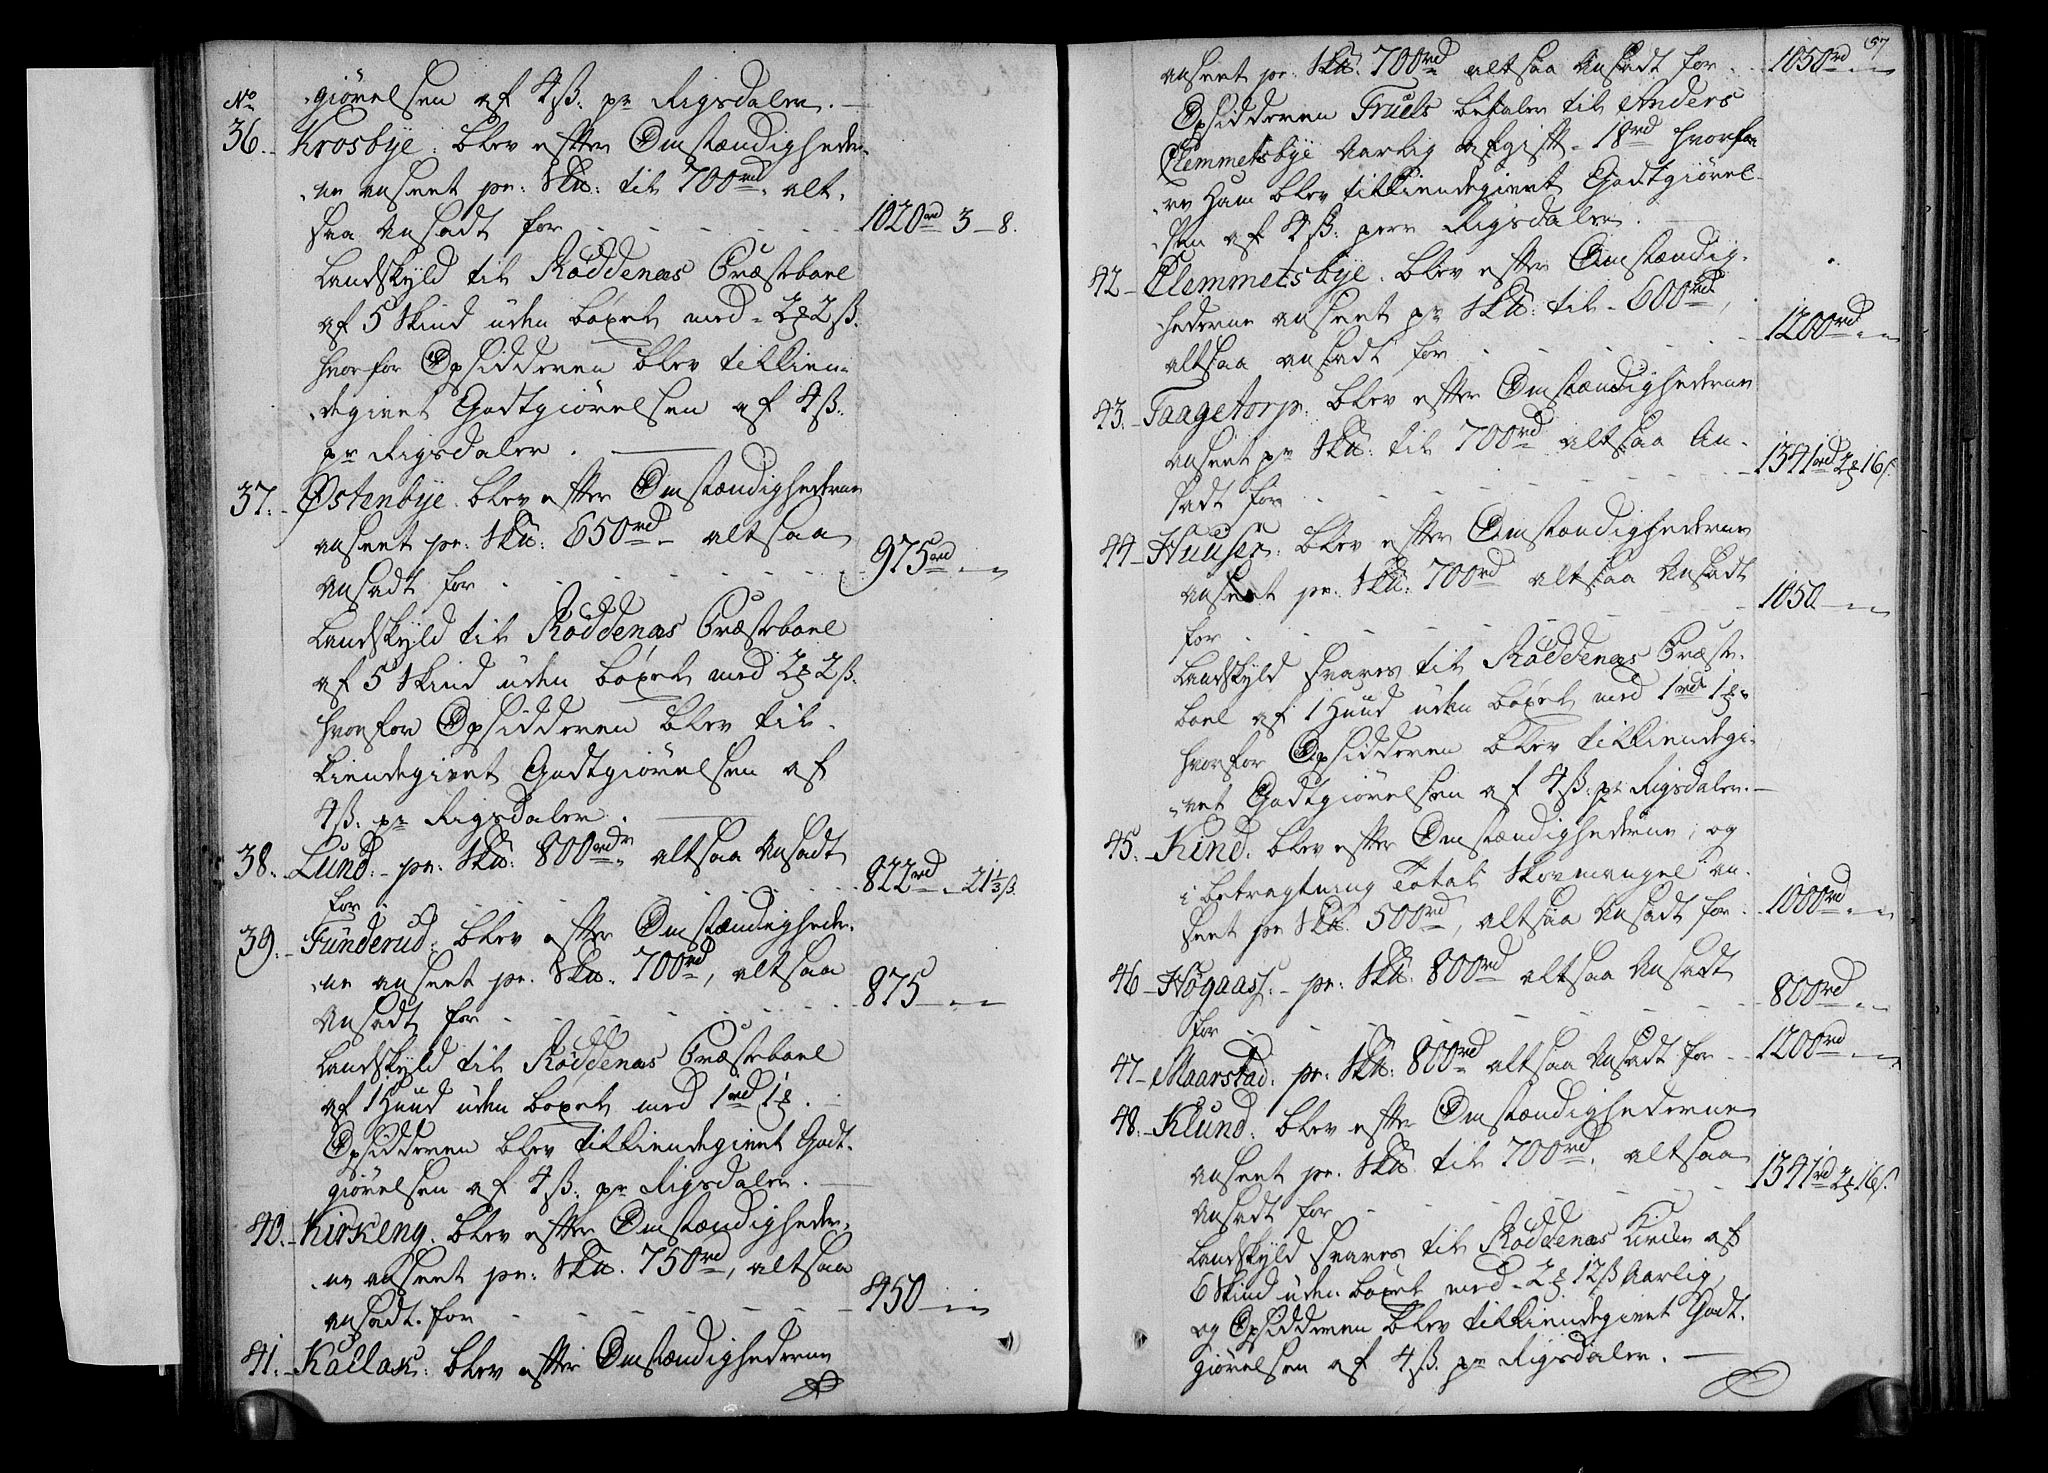 No
giørelsen af 4 ß: pr Rigsdaler.
36. Krosbye. blev efter Omstændighede-
ne anseet pr: Sk℔: til 700rd alt-
saa Ansadt for - - - 1020rd 3 - 8.
Landskyld til Røddenæs Præsteboel
af 5 Skind uden bøxel med - 2 ℥ 2 ß.
hvorfor Opsidderen blev tilkien-
degivet Godtgiørelsen af 4 ß:
pr Rigsdaler.
37. Østenbye. blev efter Omstændighederne
anseet pr: Sk℔: 650rd altsaa
Ansadt for - - - 975rd - „ -
Landskyld til Røddenæs Præsteboel
af 5 Skind uden bøxel med 2 ℥ 2 ß.
hvorfor Opsidderen blev til-
kiendegivet Godtgiørelsen af
4 ß: pr Rigsdaler.
38. Lund. pr: Sk℔: 800rd altsaa Ansadt
for - - - 822rd „ - 21 1/3 ß.
39. Funderud. blev efter Omstændighede-
ne anseet pr: Sk℔: 700rd, altsaa
Ansadt for - - - 875 - „ -
Landskyld til Røddenæs Præsteboel
af 1 Huud uden bøxel med 1rd 1 ℥.
Opsidderen blev tilkiendegivet Godt-
giørelsen af 4 ß: pr Rigsdaler.
40. Kirkeng. blev efter Omstændighede-
ne anseet pr: Sk℔. 750rd, altsaa
ansadt for - - - 450 - „ -
41. Kallak: blev efter Omstændighederne
57
anseet pr: Sk℔. 700rd altsaa Ansadt for - 1050rd - „ -
Opsidderen Truels betaler til Anders
Clemmetsbye Aarlig Afgift - 18rd hvorfo-
re ham blev tilkiendegivet Godtgiørel-
sen af 4 ß: pero Rigsdaler.
42 - Clemmetsbye. blev efter Omstændig-
hederne anseet pr Sk℔: til - 600rd,
altsaa ansadt for - - - 1200rd „ -
43. Taagetorp. blev efter Omstændighederne
anseet pr Sk℔: til 700rd altsaa An-
sadt for - - - 1341rd 2 ℥ 16 ß.
44 - Huusen: blev efter Omstændighederne
anseet pr: Sk℔: 700rd altsaa Ansadt
for - - - 1050 - „ -
Landskyld svares til Røddenæs Præste-
boel af 1 Huud uden bøxel med 1rd 1 ℥.
hvorfor Opsidderen blev tilkiendegi-
vet Godtgiørelsen af 4 ß: pr Rigsdaler.
45. Kind. blev efter Omstændighederne, og
i betragtning Total Skovmangel an-
seet pr Sk℔. 500rd, altsaa Ansadt for - 1000rd „ -
46 - Høgaas. - pr: Sk℔. 800rd altsaa Ansadt
for - - - 800rd „ -
47 - Maarstad. pr: Sk℔: 800rd altsaa Ansadt for - 1200rd - „
48. Klund. blev efter Omstændighederne
anseet pr. Sk℔ til 700rd, altsaa
Ansadt for - - - 1341rd 2 ℥ 16 ß.
Landskyld svares til Røddenæs Kirke af
6 Skind uden bøxel med - 2 ℥ 12 ß Aarlig,
og Opsidderen blev tilkiendegivet Godt-
giørelsen af 4 ß. pr Rigsdaler.